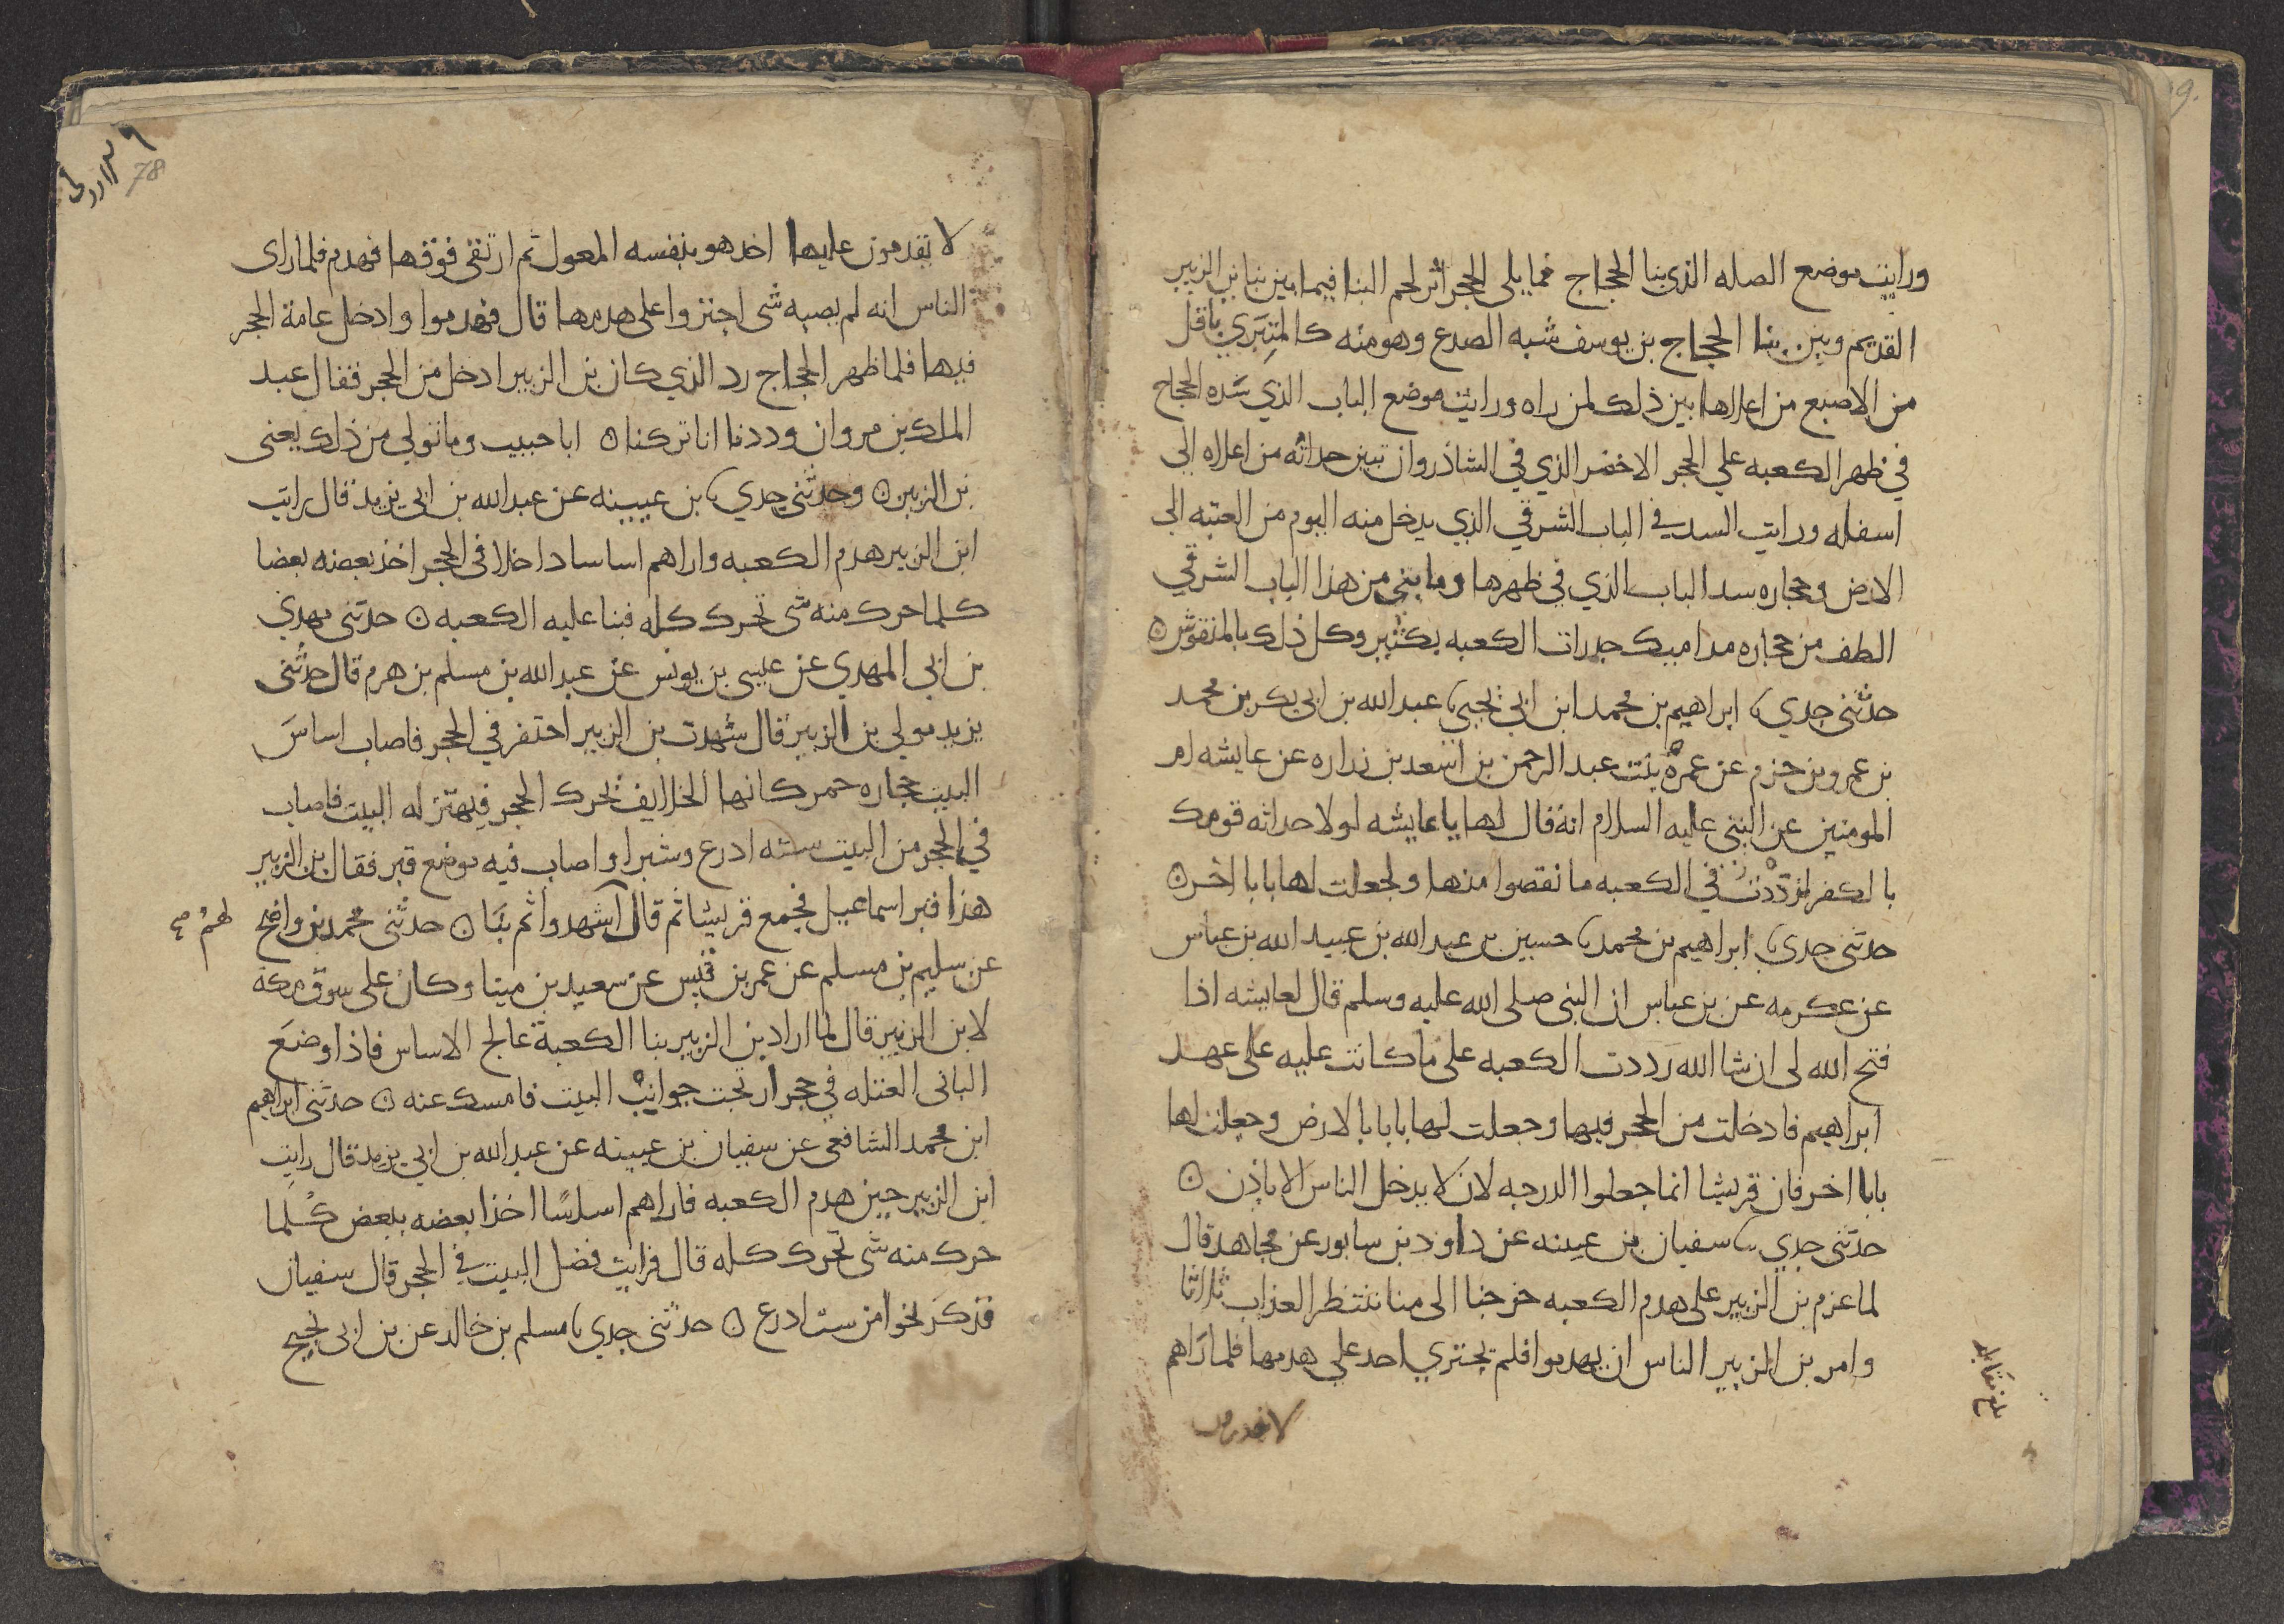 ورايت موضع الصله الذي بنا الحجاج مما يلي الحجر اثر لحم البنا فيما بين بنا بن الزبير
القديم وبين بنا الحجاج بن يوسف شبه الصدع وهو منه كالمتبري باقل
من الاصبع من اعلاها بين ذلك لمن راه ورايت موضع الباب الذي سده الحجاج
في ظهر الكعبه علي الحجر الاخضر الذي في الشاذروان تبين حداثه من اعلاه الى
اسفله ورايت السد في الباب الشرقي الذي يدخل منه اليوم من العتبه الى
الارض وحجاره سد الباب الذي في ظهرها وما بني من هذا الباب الشرقي
الطف من حجاره مداميك جدرات الكعبه بكثير وكل ذلك بالمنقوش ن
حدثني جدي ابراهيم بن محمد ابن ابي يحيي عبد الله بن ابي بكر بن محمد
بن عمرو بن حزم عن عمرة بنت عبد الرحمن بن اسعد بن زراره عن عايشه ام
المومنين عن النبي عليه السلام انه قال لها يا عايشه لولا حداثه قومك
بالكفر لرددت في الكعبه ما نقصوا منها ولجعلت لها بابا اخر ن
حدثني جدي ابراهيم بن محمد حسين بن عبد الله بن عبيد الله بن عباس
عن عكرمه عن بن عباس ان النبي صلى الله عليه وسلم قال لعايشه اذا
فتح الله لي ان شا الله رددت الكعبه على ما كانت عليه على عهد
ابراهيم فادخلت من الحجر فيها وجعلت لها بابا بالارض وجعلت لها
بابا اخر فان قريشا انما جعلوا الدرجه لان لا يدخل الناس الا باذن ن
حدثني جدي سفيان بن عيينه عن داود بن سابور عن مجاهد قال
لما عزم بن الزبير على هدم الكعبه خرجنا الى منا ننتظر العذاب ثلاثا
وامر بن الزبير الناس ان يهدموا فلم يجتري احد علي هدمها فلما راهم
لا يقدمون
بلغ مقابله
78
لا يقدمون عليها اخذ هو بنفسه المعول ثم ارتقى فوقها فهدم فلما راى
الناس انه لم يصبه شي اجتروا على هدمها قال فهدموا وادخل عامة الحجر
فيها فلما ظهر الحجاج رد الذي كان بن الزبير ادخل من الحجر فقال عبد
الملك بن مروان وددنا انا تركنا ن ابا حبيب وما تولي من ذلك يعنى
بن الزبير ن وحدثني جدي بن عيينه عن عبد الله بن ابي يزيد قال رايت
ابن الزبير هدم الكعبه واراهم اساسا داخلا في الحجر اخذ بعضه بعضا
كلما حرك منه شي تحرك كله فبنا عليه الكعبه ن حدثني مهدي
بن ابي المهدي عن عيسى بن يونس عن عبد الله بن مسلم بن هرم قال حدثني
يزيد مولى بن الزبير قال شهدت بن الزبير احتفر في الحجر فاصاب اساس
البيت حجاره حمر كانها الخلايف تحرك الحجر فيهتز له البيت فاصاب
في الحجر من البيت سته اذرع وشبرا واصاب فيه موضع قبر فقال بن الزبير
هذا قبر اسماعيل فجمع قريشا ثم قال اشهدوا ثم بنا ن حدثني محمد بن واضح
لهم صح
عن سليم بن مسلم عن عمر بن قيس عن سعيد بن مينا وكان على سوق مكه
لابن الزبير قال لما اراد بن الزبير بنا الكعبة عالج الاساس فاذا وضع
الباني العتله في حجر ارتجت جوانب البيت فامسك عنه ن حدثني ابراهيم
ابن محمد الشافعي عن سفيان بن عيينه عن عبد الله بن ابي يزيد قال رايت
ابن الزبير حين هدم الكعبه فاراهم اساسا اخذا بعضه ببعض كلما
حرك منه شي تحرك كله قال فرايت فضل البيت في الحجر قال سفيان
فذكر نحوا من ست اذرع ن حدثني جدي مسلم بن خالد عن بن ابي نجيح